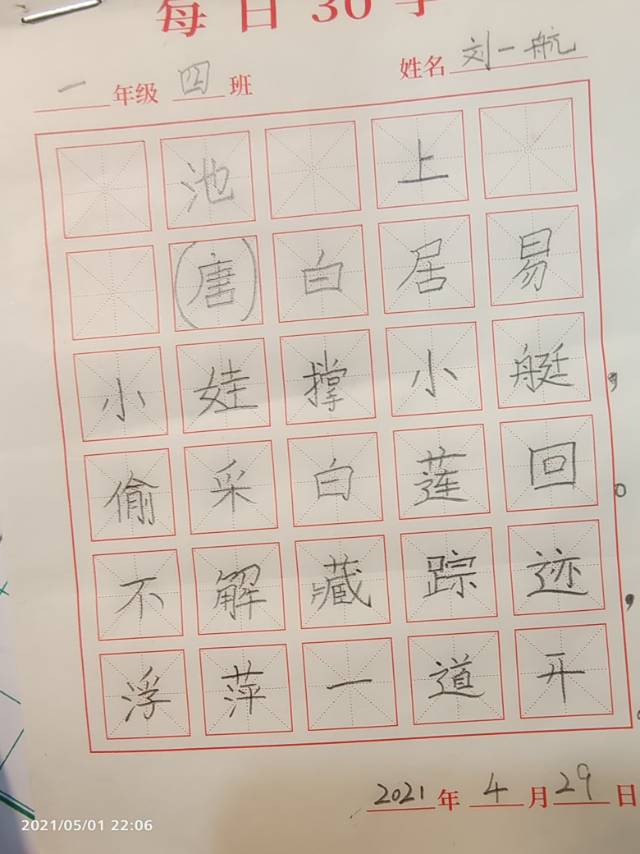 每日30字
一年级 四班 姓名 刘一航
池 上
(唐)白居易
小娃撑小艇,
偷采白莲回。
不解藏踪迹,
浮萍一道开。
2021年 4月29日
2021/05/01 22:06